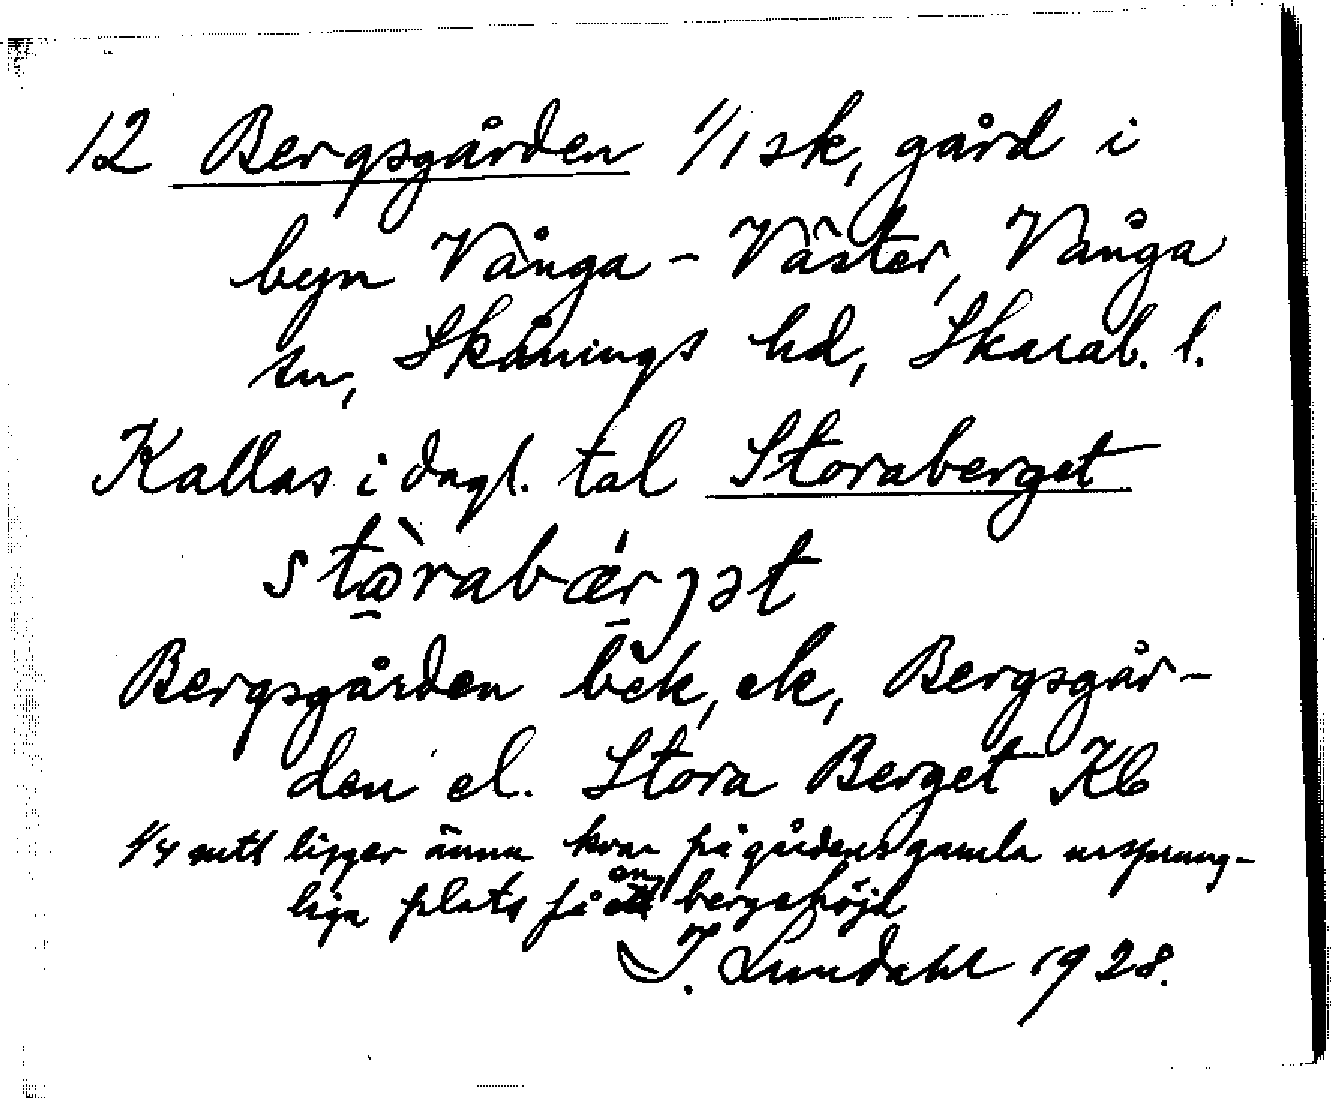 12 Bergsgården 1/1 sk, gård i
byn Vånga - Väster, Vånga
sn, Skånings hd, Skarab. l.
Kallas i dagl. tal Storaberget
stòrabǽrjət
Bergsgården bek, ek, Bergsgår-
den el. Stora Berget Kb
1/4 mtl ligger ännu kvar på gårdens gamla ursprung-
liga plats på en bergshöjd
I. Lundahl 1928.